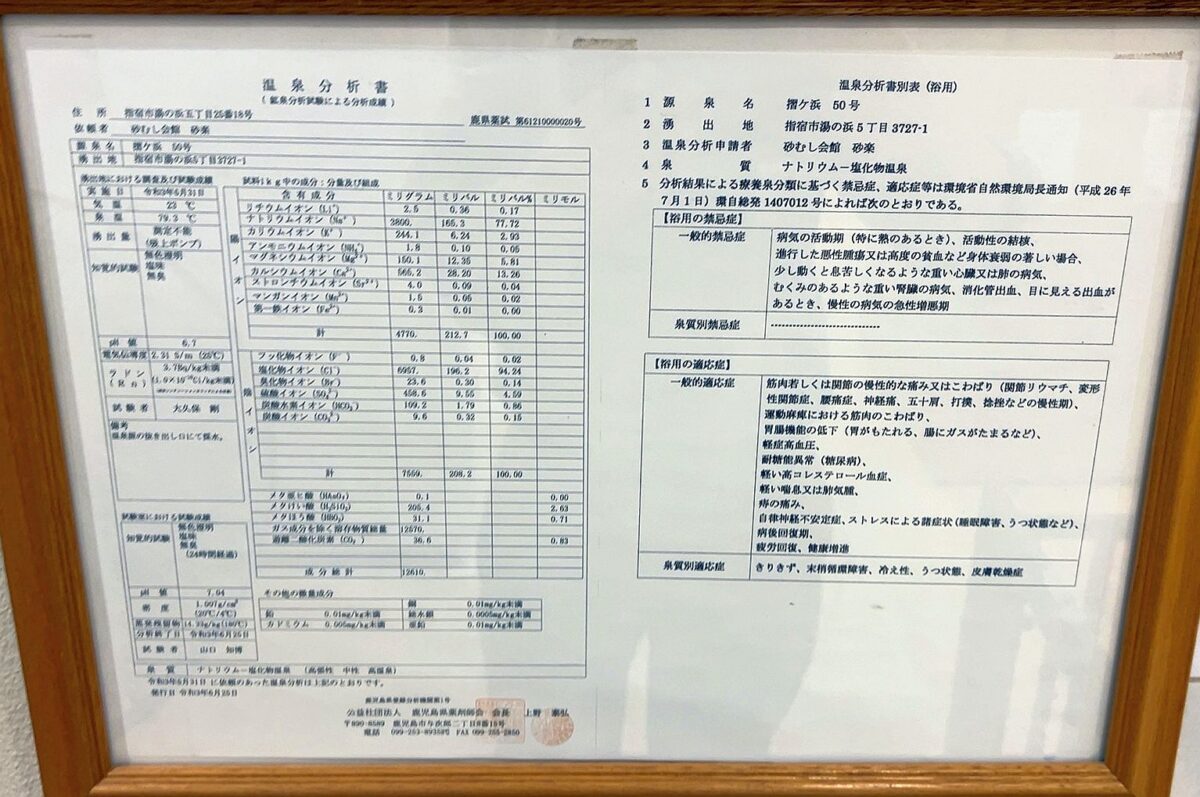 温泉分析書
(鉱泉分析試験による分析成績)
住所 指宿市湯の浜五丁目25番18号
鹿県薬試 第61210000020号
依頼者 砂むし会館 砂楽
源泉名 摺ケ浜 50号
湧出地 指宿市湯の浜5丁目3727-1
湧出地における調査及び試験成績
実施日 令和3年5月31日
気温 23 ℃
泉温 79.3 ℃
湧出量 測定不能
(吸上ポンプ)
知覚的試験 無色澄明
塩味
無臭
pH 値 6.7
電気伝導度 2.31 S/m (25℃)
ラドン (Rn) 3.7Bq/kg未満
試験者 大久保 剛
備考
試料1kg中の成分:分量及び組成
含有成分 ミリグラム ミリバル ミリバル% ミリモル
陽イオン
リチウムイオン (Li⁺) 2.5 0.36 0.17
ナトリウムイオン (Na⁺) 3800. 165.3 77.72
カリウムイオン (K⁺) 244.1 6.24 2.93
アンモニウムイオン (NH₄⁺) 1.8 0.10 0.05
マグネシウムイオン (Mg²⁺) 150.1 12.35 5.81
カルシウムイオン (Ca²⁺) 565.2 28.20 13.26
ストロンチウムイオン (Sr²⁺) 4.0 0.09 0.04
マンガンイオン (Mn²⁺) 1.5 0.05 0.02
第一鉄イオン (Fe²⁺) 0.3 0.01 0.00
計 4770. 212.7 100.00
陰イオン
フッ化物イオン (F⁻) 0.8 0.04 0.02
塩化物イオン (Cl⁻) 6957. 196.2 94.24
臭化物イオン (Br⁻) 23.6 0.30 0.14
硫酸イオン (SO₄²⁻) 458.6 9.55 4.59
炭酸水素イオン (HCO₃⁻) 109.2 1.79 0.86
炭酸イオン (CO₃²⁻) 9.6 0.32 0.15
計 7559. 208.2 100.00
メタ亜ヒ酸 (HAsO₂) 0.1 0.00
メタけい酸 (H₂SiO₃) 205.4 2.63
メタほう酸 (HBO₂) 31.1 0.71
ガス成分を除く溶存物質総量 12570.
遊離二酸化炭素 (CO₂) 36.6 0.83
成分総計 12610.
試験室における試験成績
知覚的試験 無色澄明
塩味
無臭
(24時間経過)
pH 値 7.04
密度 1.007g/cm³
(20℃/4℃)
蒸発残留物 14.33g/kg(180℃)
分析終了日 令和3年6月25日
試験者 山口 知博
その他の微量成分
銅 0.01mg/kg未満
鉛 0.01mg/kg未満 総水銀 0.0005mg/kg未満
カドミウム 0.005mg/kg未満 亜鉛 0.01mg/kg未満
泉質 ナトリウム-塩化物温泉 (高張性 中性 高温泉)
令和3年5月31日 に依頼のあった温泉分析は上記のとおりです。
発行日 令和3年6月25日
鹿児島県登録分析機関第1号
公益社団法人 鹿児島県薬剤師会 会長 上野 泰弘
〒890-8589 鹿児島市与次郎二丁目8番15号
電話 099-253-8935 FAX 099-255-2850
温泉分析書別表 (浴用)
1 源泉名 摺ケ浜 50号
2 湧出地 指宿市湯の浜5丁目3727-1
3 温泉分析申請者 砂むし会館 砂楽
4 泉質 ナトリウム-塩化物温泉
5 分析結果による療養泉分類に基づく禁忌症、適応症等は環境省自然環境局長通知(平成26年
7月1日)環自総発1407012号によれば次のとおりである。
【浴用の禁忌症】
一般的禁忌症 病気の活動期(特に熱のあるとき)、活動性の結核、
進行した悪性腫瘍又は高度の貧血など身体衰弱の著しい場合、
少し動くと息苦しくなるような重い心臓又は肺の病気、
むくみのあるような重い腎臓の病気、消化管出血、目に見える出血が
あるとき、慢性の病気の急性増悪期
泉質別禁忌症 ------------------------------
【浴用の適応症】
一般的適応症 筋肉若しくは関節の慢性的な痛み又はこわばり(関節リウマチ、変形
性関節症、腰痛症、神経痛、五十肩、打撲、捻挫などの慢性期)、
運動麻痺における筋肉のこわばり、
胃腸機能の低下(胃がもたれる、腸にガスがたまるなど)、
軽症高血圧、
耐糖能異常(糖尿病)、
軽い高コレステロール血症、
軽い喘息又は肺気腫、
痔の痛み、
自律神経不安定症、ストレスによる諸症状(睡眠障害、うつ状態など)、
病後回復期、
疲労回復、健康増進
泉質別適応症 きりきず、末梢循環障害、冷え性、うつ状態、皮膚乾燥症